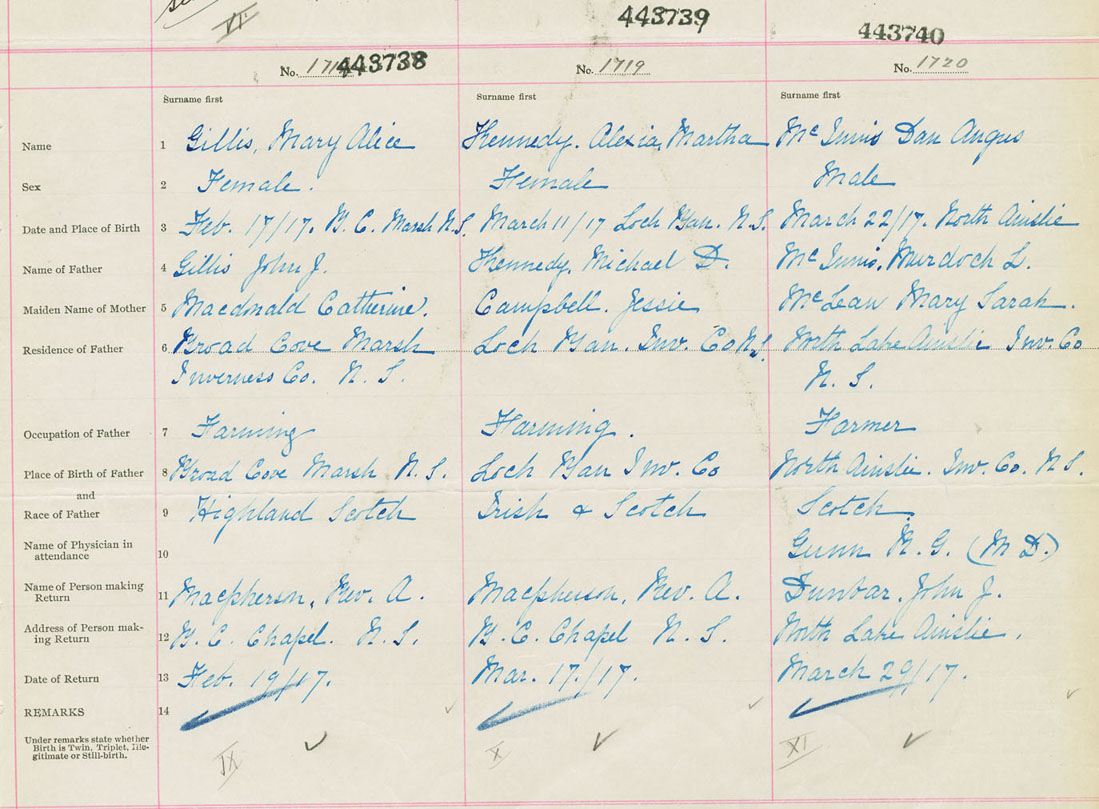 VI.
443739
443740
443738
No. 1719
No. 1720
Surname first
Surname first
Surname first
Name 1 Gillis, Mary Alice Kennedy. Alexia, Martha Mc Innis Dan Angus
Sex 2 Female. Female Male
Date and Place of Birth 3 Feb. 17/17. B. C. Marsh N.S. March 11/17 Loch Ban. N.S. March 22/17. North Ainslie
Name of Father 4 Gillis John J. Kennedy, Michael D. Mc Innis, Murdoch L.
Maiden Name of Mother 5 Macdonald Catherine. Campbell. Jessie McLean Mary Sarah.
Residence of Father 6 Broad Cove Marsh Loch Ban. Inv. Co N.S. North Lake Ainslie Inv. Co
Inverness Co. N.S. N.S.
Occupation of Father 7 Farming Farming. Farmer
Place of Birth of Father 8 Broad Cove Marsh N.S. Loch Ban Inv. Co North Ainslie. Inv. Co. N.S.
and
Race of Father 9 Highland Scotch Irish & Scotch Scotch.
Name of Physician in
attendance 10 Gunn N. G. (M D.)
Name of Person making
Return 11 Macpherson, Rev. A. Macpherson, Rev. A. Dunbar, John J.
Address of Person mak-
ing Return 12 B. C. Chapel. N.S. B. C. Chapel N.S. North Lake Ainslie.
Date of Return 13 Feb. 19/17. Mar. 17./17. March 29/17.
REMARKS 14
Under remarks state whether
Birth is Twin, Triplet, Ille-
gitimate or Still-birth.
IX X XI